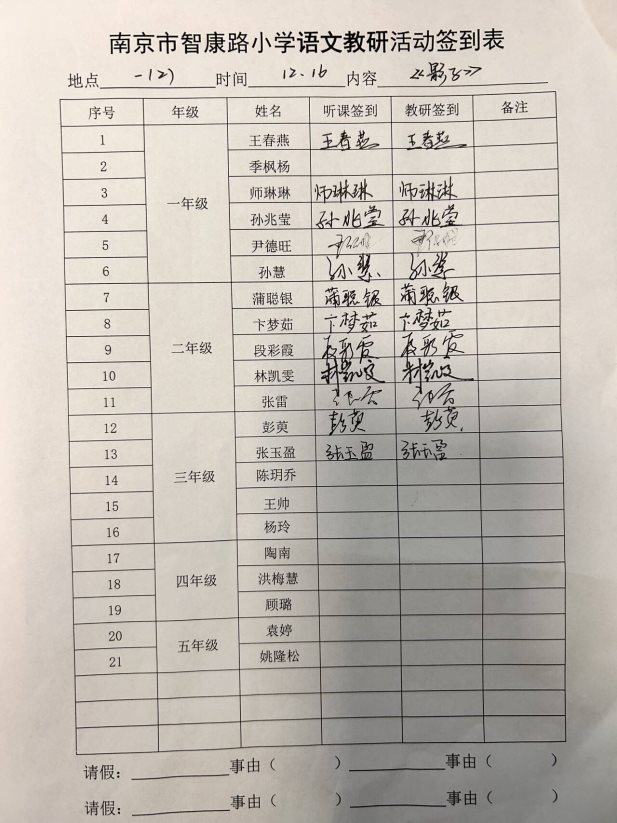 南京市智康路小学语文教研活动签到表
地点 一(2) 时间 12.16 内容 《影子》
序号 年级 姓名 听课签到 教研签到 备注
1 王春燕 王春燕 王春燕
2 季枫杨
3 师琳琳 师琳琳 师琳琳
一年级
4 孙兆莹 孙兆莹 孙兆莹
5 尹德旺
6 孙慧 孙慧 孙慧
7 蒲聪银 蒲聪银 蒲聪银
8 卞梦茹 卞梦茹 卞梦茹
二年级
9 段彩霞 段彩霞 段彩霞
10 林凯雯 林凯雯 林凯雯
11 张雷 张雷 张雷
12 彭荬 彭荬 彭荬
13 张玉盈 张玉盈 张玉盈
14 陈玥乔
三年级
15 王帅
16 杨玲
17 陶南
18 四年级 洪梅慧
19 顾璐
20 袁婷
五年级
21 姚隆松
请假： 事由（ ） 事由（ ）
请假： 事由（ ） 事由（ ）